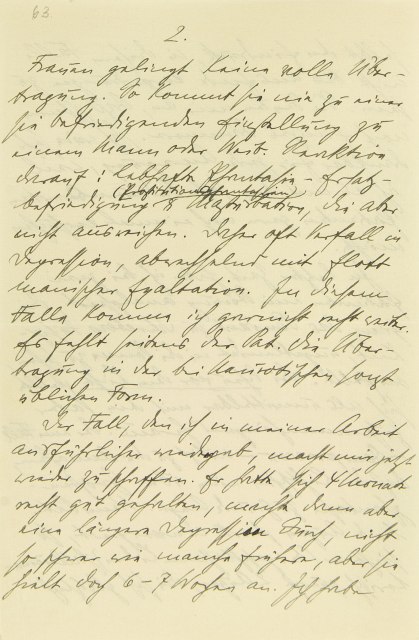 63.
2.
Frauen gelingt keine volle Über-
tragung. So kommt sie nie zu einer
sie befriedigenden Einstellung zu
einem Mann oder Weib. Reaktion
darauf: lebhafte Phantasie-Ersatz-
(Prostitutionsphantasien)
befriedigung & Masturbation, die aber
nicht ausreichen. Daher oft Verfall in
Depression, abwechselnd mit flott
manischer Exaltation. In diesem
Falle komme ich garnicht recht weiter.
Es fehlt seitens der Pat. die Über-
tragung in der bei Neurotischen sonst
üblichen Form.
Der Fall, den ich in meiner Arbeit
ausführlicher wiedergab, macht mir jetzt
wieder zu schaffen. Er hatte sich 4 Monate
recht gut gehalten, machte dann aber
eine längere Depression durch, nicht
so schwer wie manche frühere, aber sie
hielt doch 6-7 Wochen an. Ich habe